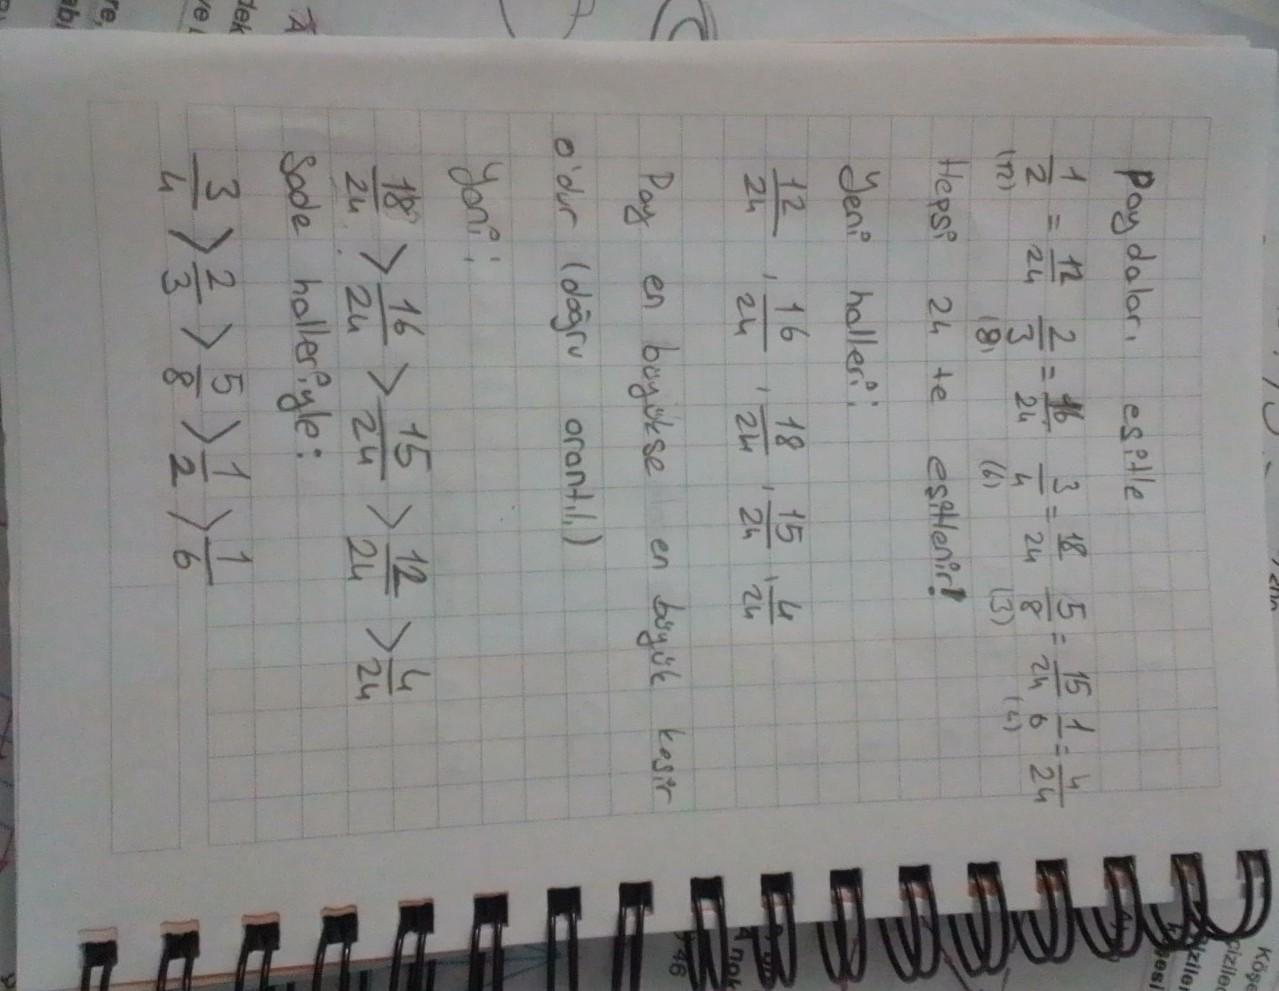 Paydaları eşitle
1/2 = 12/24 2/3 = 16/24 3/4 = 18/24 5/8 = 15/24 1/6 = 4/24
(12) (8) (6) (3) (4)
Hepsi 24 te eşitlenir!
Yeni halleri:
12/24, 16/24, 18/24, 15/24, 4/24
Pay en büyükse en büyük kesir
o'dur (doğru orantılı)
Yani:
18/24 > 16/24 > 15/24 > 12/24 > 4/24
Sade halleriyle:
3/4 > 2/3 > 5/8 > 1/2 > 1/6